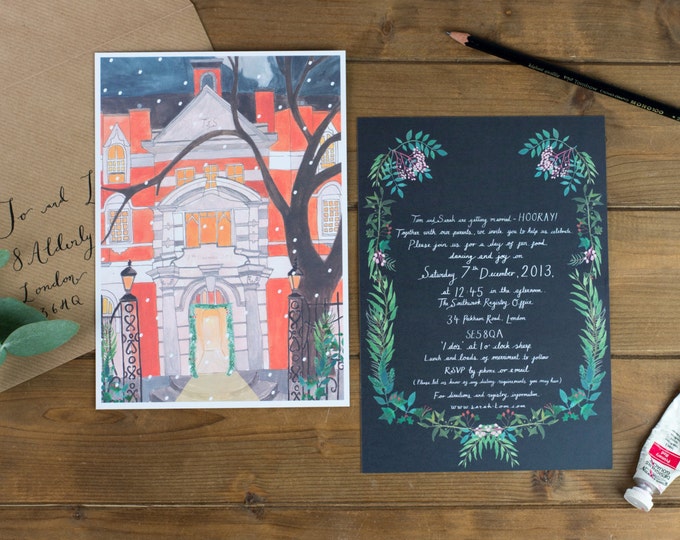 To and
8 Alderly
London
Tom and Sarah are getting married - HOORAY!
Together with our parents, we invite you to help us celebrate.
Please join us for a day of fun, food,
dancing and joy on
Saturday 7th December, 2013,
at 12.45 in the afternoon
The Southwark Registry Office
34 Peckham Road, London
SE58QA
'I dos' at 1o'clock sharp
Lunch and loads of merriment to follow
RSVP by phone or email
(Please let us know of any dietary requirements you may have)
For directions and registry information